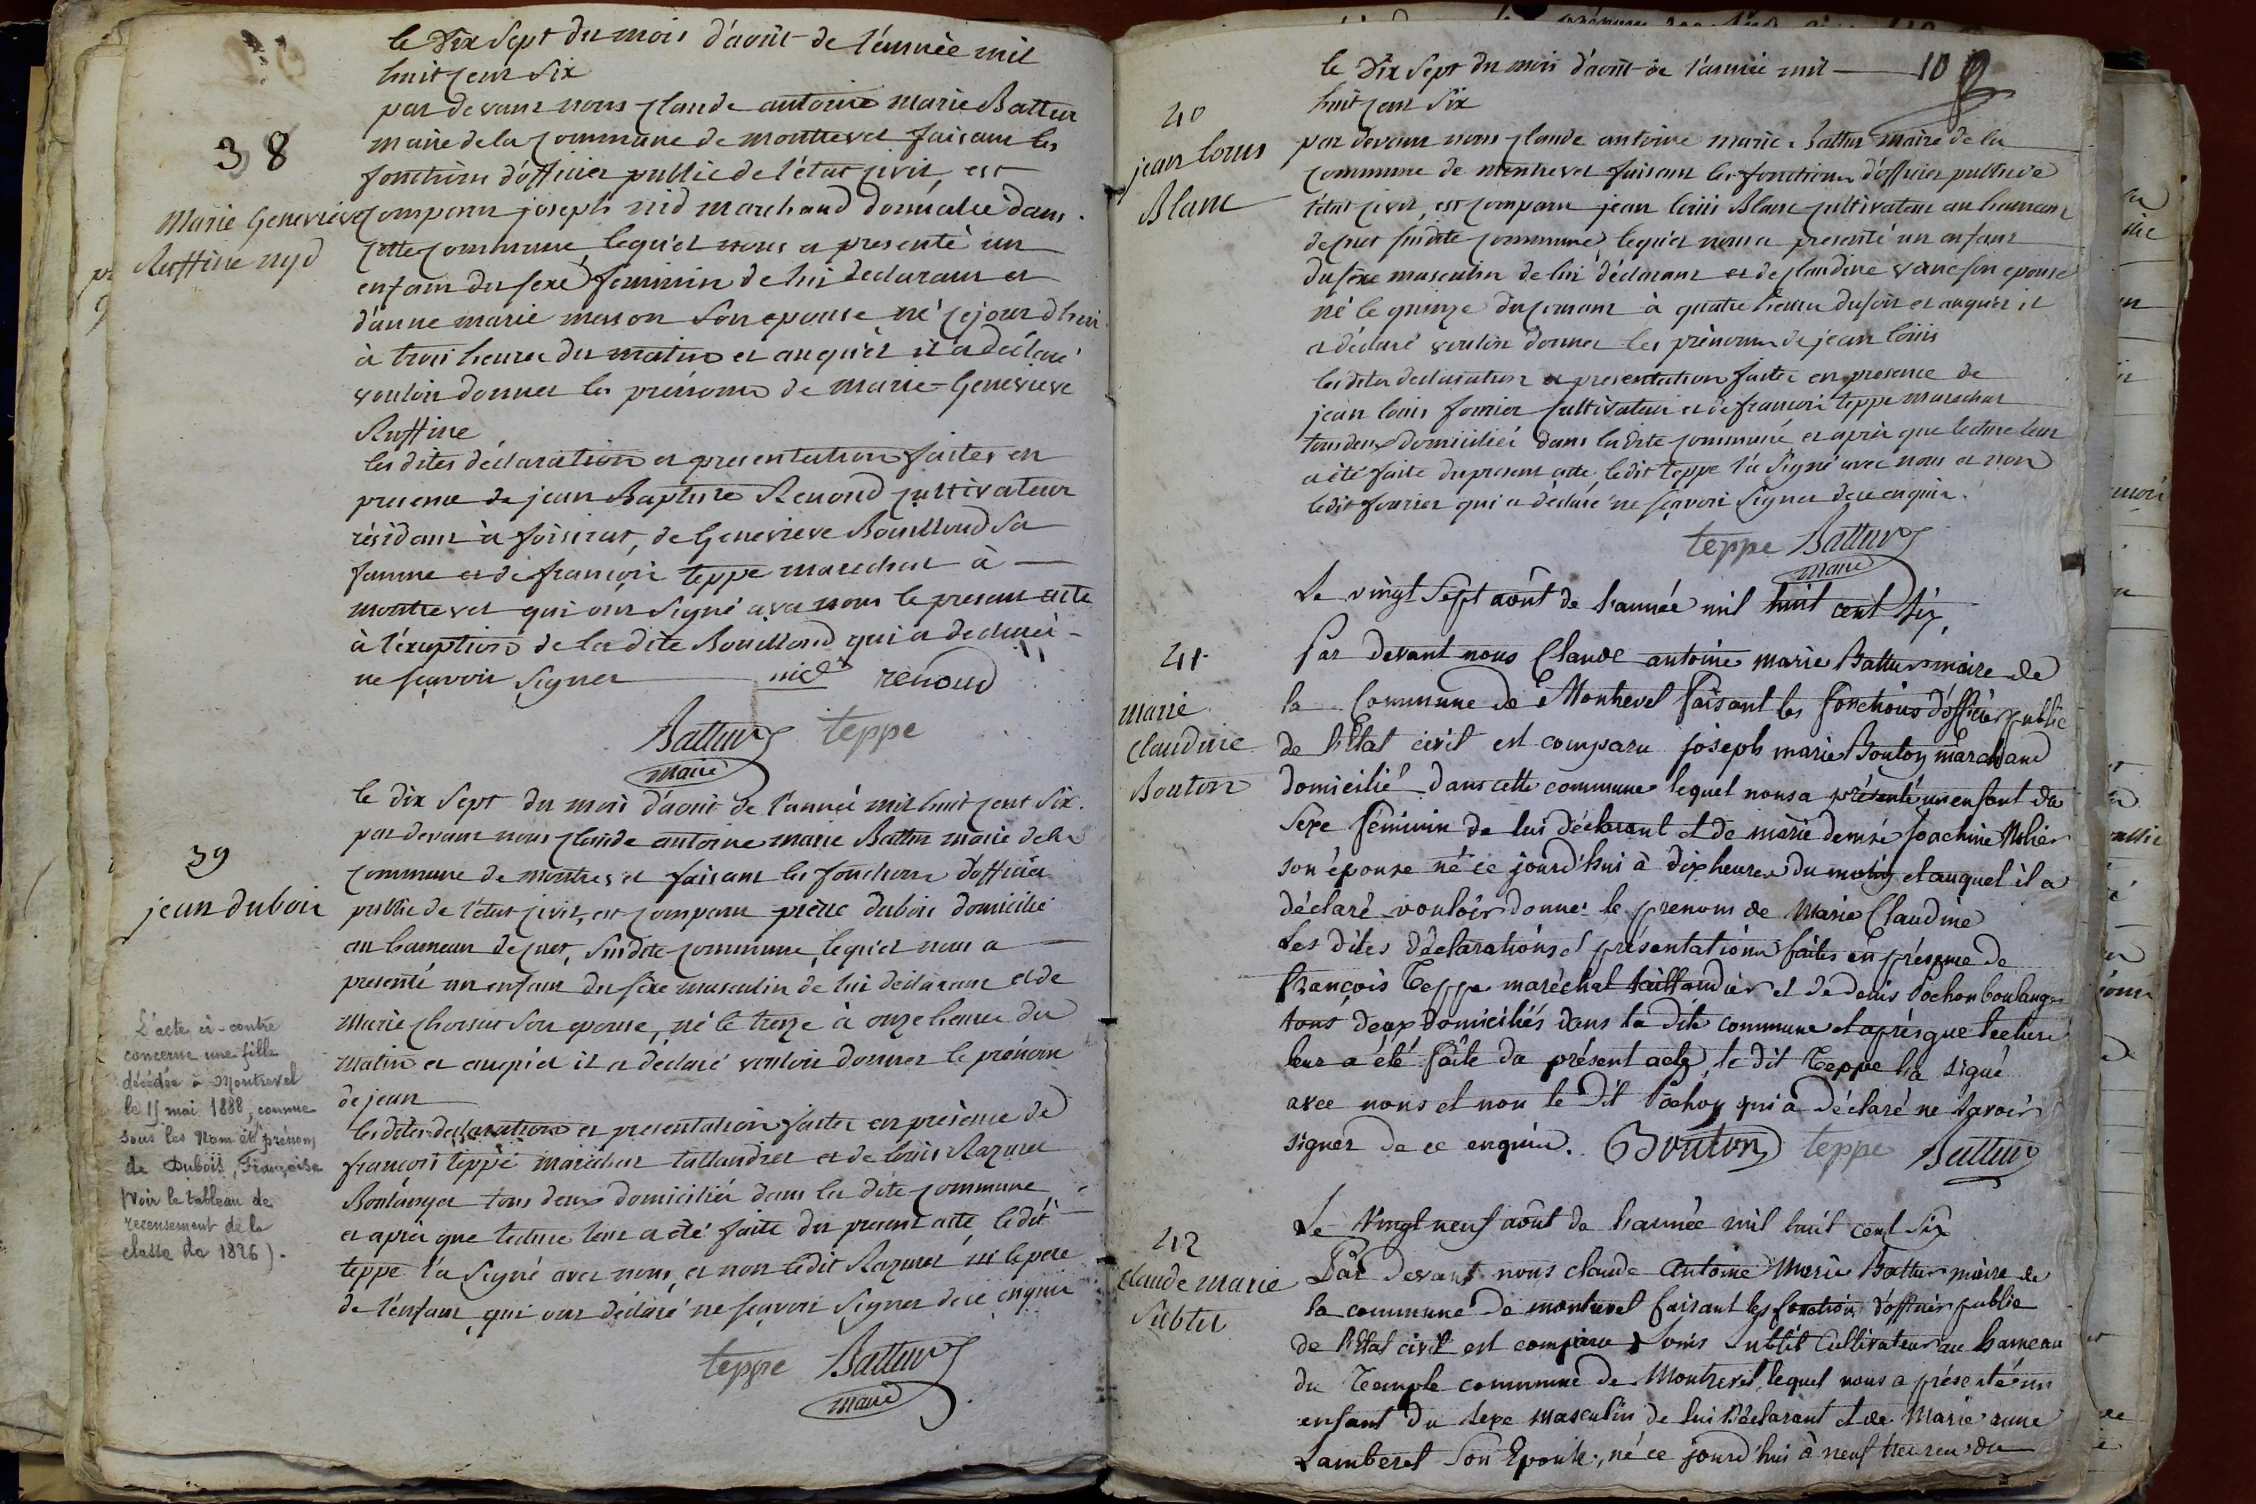 le Dix Sept du mois d'août de l'année mil
huit cent Six
par devant nous Claude antoine marie Battur
maire de la commune de montrevel faisant les
fonctions d'officier public de l'état civil, est
38
Marie Genevieve
Ruffine nyd
comparu joseph nid marchand domicilié dans
cette commune, lequel nous a presenté un
enfant du sexe feminin de lui declarant et
d'anne marie mason Son epouse né cejourd'hui
à trois heures du matin et auquel il a déclaré
vouloir donner les prénoms de Marie-Genevieve
Ruffine
les dites déclaration et presentation faites en
presence de jean Baptiste Renoud cultivateur
résidant à foissiat, de Genevieve Bouilloud sa
femme et de françois teppe marechal à
montrevel qui ont signé avec nous le present acte
à l'exeption de la dite Bouilloud qui a declaré
ne sçavoir signer nid renoud
Battur teppe
maire
le dix Sept du mois d'août de l'année mil huit cent Six.
par devant nous Claude antoine marie Battur maire de la
39
jean dubois
commune de montrevel faisant les fonctions d'officier
public de l'état civil, est comparu pierre dubois domicilié
au hameau de cuet, susdite commune, lequel nous a
presenté un enfant du sexe masculin de lui déclarant et de
Marie Son epouse, né le treize à onze heures du
matin et auquel il a déclaré vouloir donner le prénom
de jean
les dites declaration et presentation faites en présence de
françois teppe maréchal taillandier et de louis Razurel
Boulanger tous deux domiciliés dans la dite commune
et après que lecture leur a été faite du present acte, ledit
teppe l'a signé avec nous, et non ledit Razurel ni le pere
de l'enfant, qui ont déclaré ne sçavoir signer de ce enquis
teppe Battur
maire
L'acte ci-contre
concerne une fille
décédée à Montrevel
le 15 mai 1888, connue
sous les Nom et prénom
de Dubois, Françoise
(Voir le tableau de
recensement de la
classe de 1826).
le Dix Sept du mois d'août de l'année mil 10
huit cent Six
40
jean louis
Blanc
par devant nous Claude antoine marie Battur maire de la
commune de montrevel faisant les fonctions d'officier public de
l'état civil, est comparu jean louis Blanc cultivateur au hameau
de cuet susdite commune, lequel nous a presenté un enfant
du sexe masculin de lui déclarant et de claudine son epouse
né le quinze du courant à quatre heures du soir et auquel il
a déclaré vouloir donner les prénoms de jean louis
les dites declaration et presentation faites en presence de
jean louis fornier cultivateur et de françois teppe marechal
tous deux domiciliés dans la dite commune et après que lecture leur
a été faite du present acte, ledit teppe l'a signé avec nous et non
ledit fournier qui a déclaré ne sçavoir signer de ce enquis.
teppe Battur
maire
Le vingt Sept août de l'année mil huit cent Six,
41
Marie
Claudine
Bouton
Par devant nous Claude antoine marie Battur maire de
la Commune de Montrevel faisant les fonctions d'officier public
de l'Etat civil est comparu joseph marie Bouton marchand
domicilié dans cette commune lequel nous a présenté un enfant du
Sexe féminin de lui déclarant et de marie denise joachine
son épouse né ce jourd'hui à dix heures du matin et auquel il a
déclaré vouloir donner le prenom de Marie Claudine
Les dites déclarations et présentation faites en présence de
françois Teppe maréchal taillandier et de denis Pochon boulanger
tous deux domiciliés dans la dite commune et après que lecture
leur a été faite du présent acte, le dit Teppe l'a signé
avec nous et non le dit Pochon qui a déclaré ne savoir
signer de ce enquis. Bouton teppe Battur
Le Vingt neuf août de l'année mil huit cent Six
42
Claude Marie
Subtil
Par devant nous claude Antoine Marie Battur maire de
la commune de montrevel faisant les fonction d'officier public
de l'Etat civil est comparu Louis Subtil Cultivateur au hameau
du Temple commune de Montrevel, lequel nous a présenté un
enfant du sexe masculin de lui Déclarant et de Marie anne
Lamberet Son Epouse, né ce jourd'hui à neuf heures du